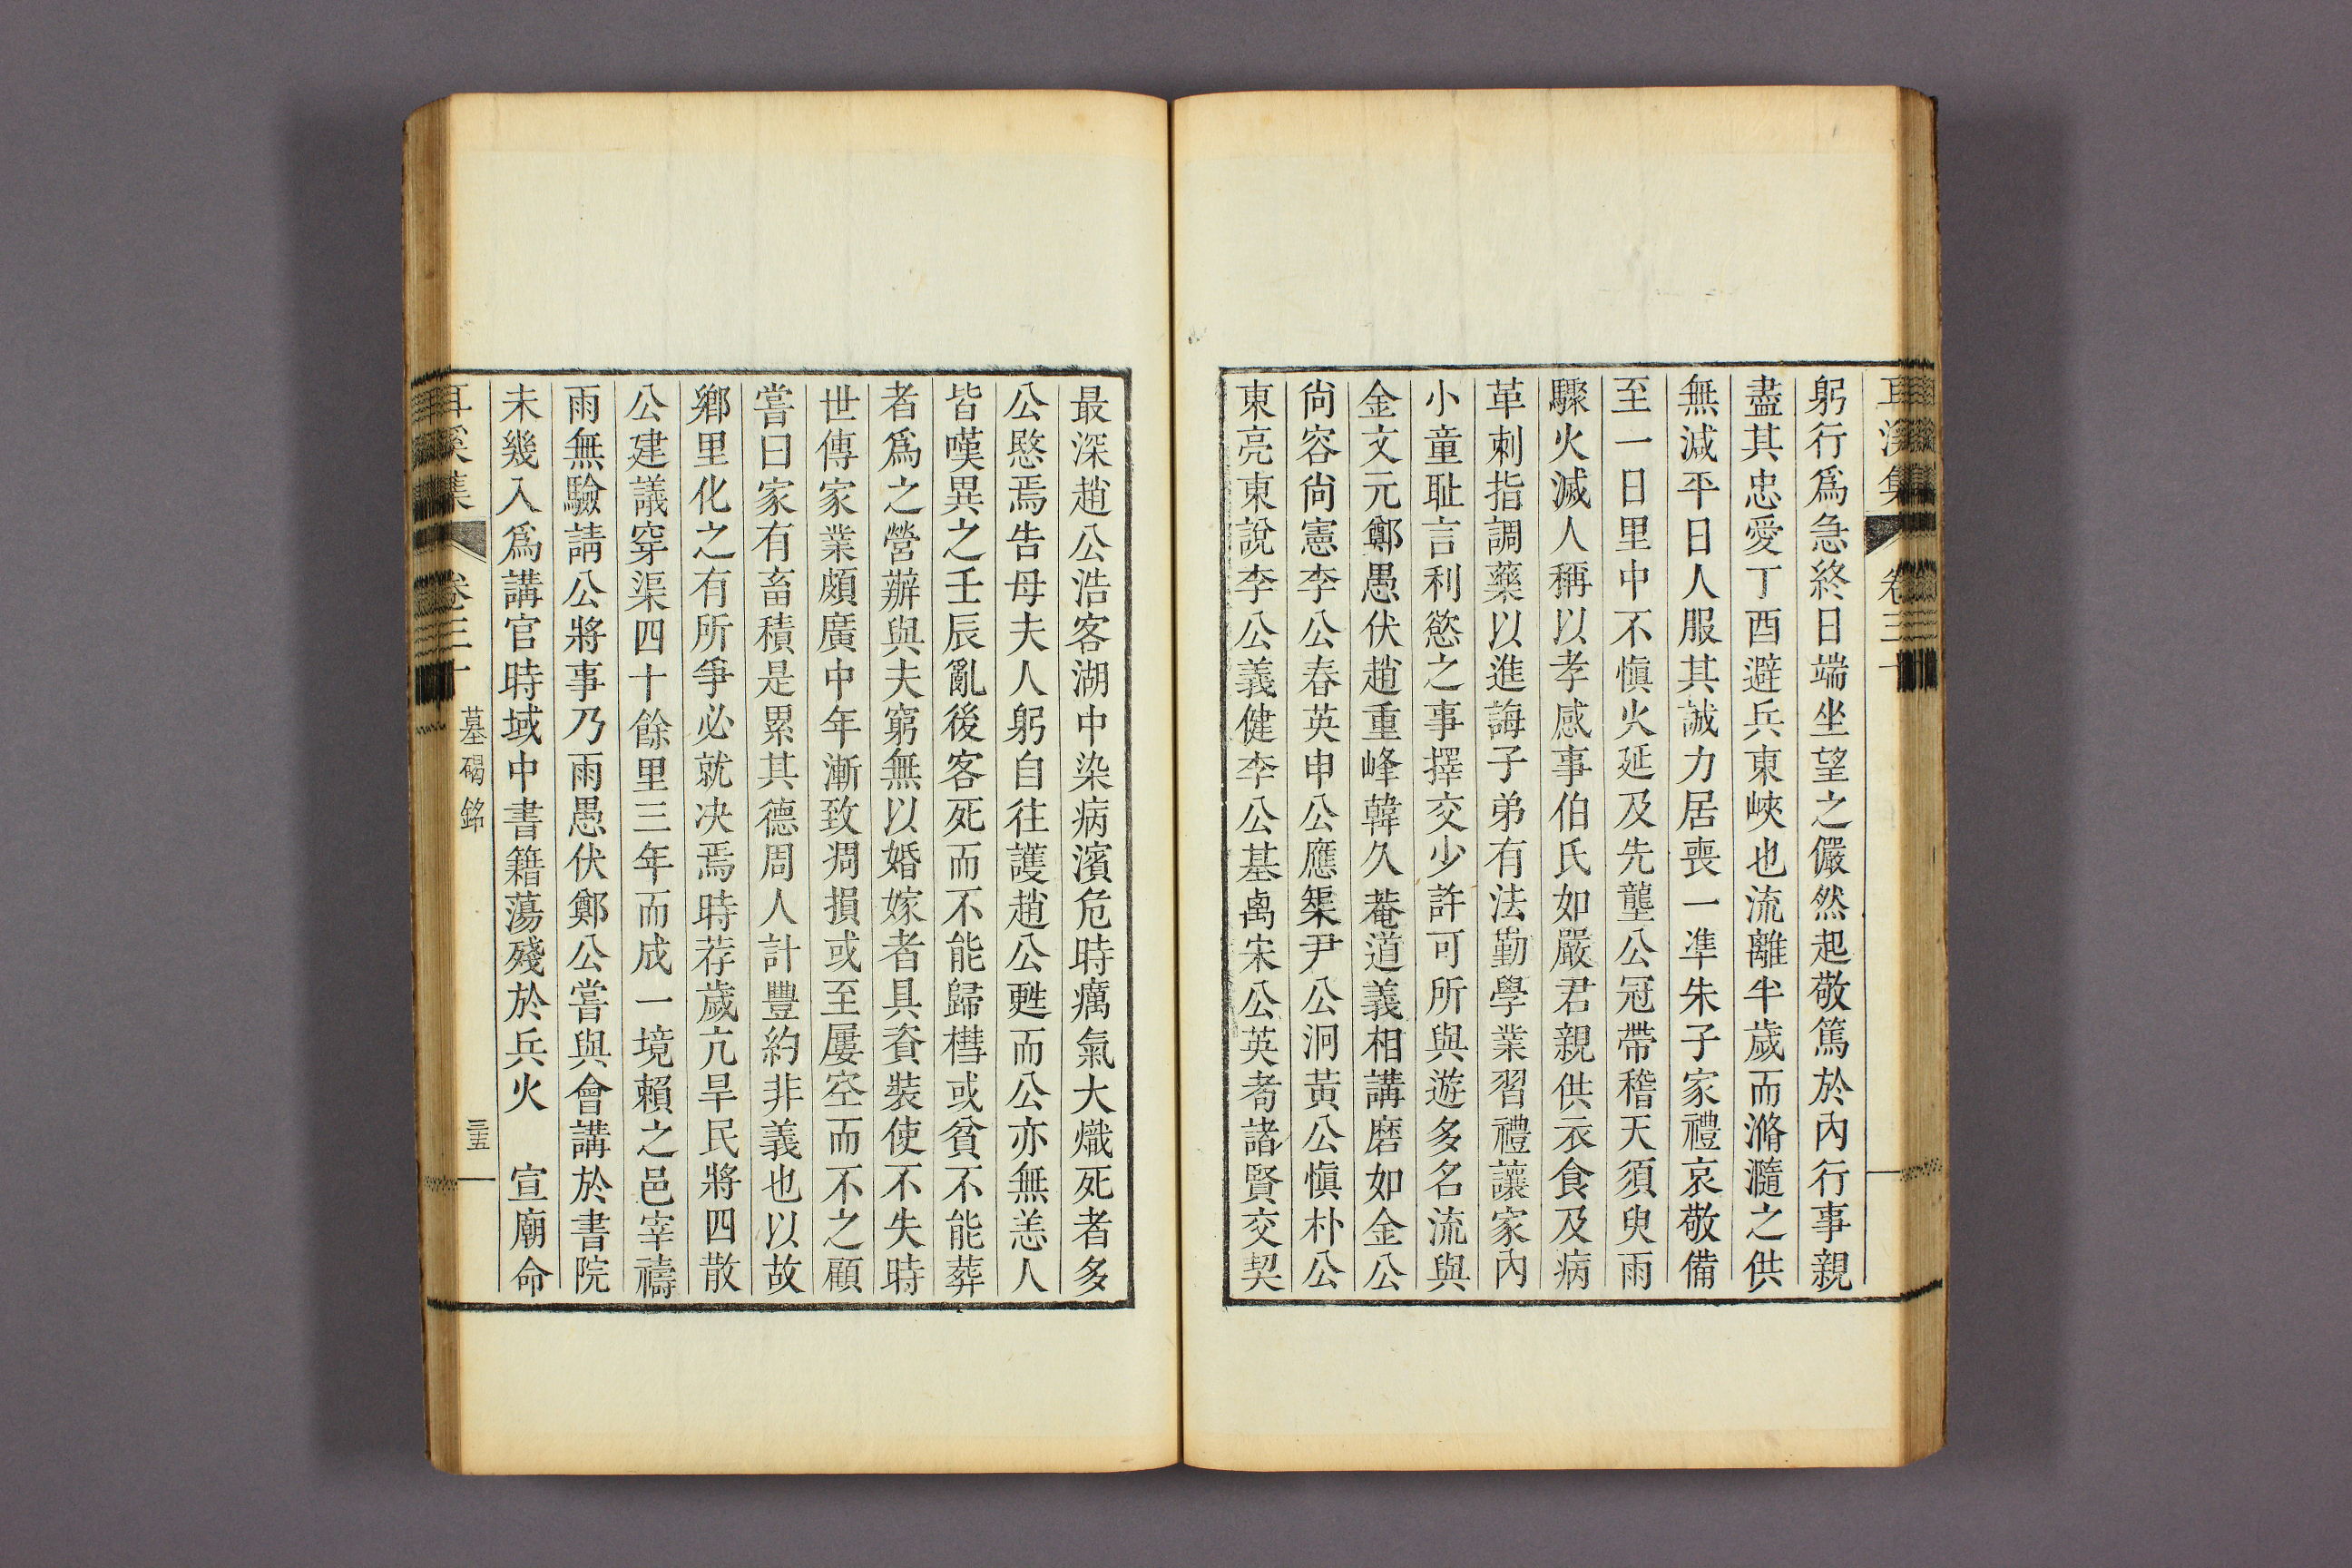 耳溪集 卷三十
躬行爲急終日端坐望之儼然起敬篤於內行事親
盡其忠愛丁酉避兵東峽也流離半歲而滫瀡之供
無減平日人服其誠力居喪一準朱子家禮哀敬備
至一日里中不愼火延及先壟公冠帶稽天須臾雨
驟火滅人稱以孝感事伯氏如嚴君親供衣食及病
革刺指調藥以進誨子弟有法勤學業習禮讓家內
小童耻言利慾之事擇交少許可所與遊多名流與
金文元鄭愚伏趙重峰韓久菴道義相講磨如金公
尙容尙憲李公春英申公應榘尹公泂黃公愼朴公
東亮東說李公義健李公基卨宋公英耈諸賢交契
最深趙公浩客湖中染病濱危時癘氣大熾死者多
公愍焉告母夫人躬自往護趙公甦而公亦無恙人
皆嘆異之壬辰亂後客死而不能歸槥或貧不能葬
者爲之營辦與夫窮無以婚嫁者具資裝使不失時
世傳家業頗廣中年漸致凋損或至屢空而不之顧
嘗曰家有畜積是累其德周人計豐約非義也以故
鄕里化之有所爭必就决焉時荐歲亢旱民將四散
公建議穿渠四十餘里三年而成一境賴之邑宰禱
雨無驗請公將事乃雨愚伏鄭公嘗與會講於書院
未幾入爲講官時域中書籍蕩殘於兵火 宣廟命
耳溪集 卷三十 墓碣銘 三五